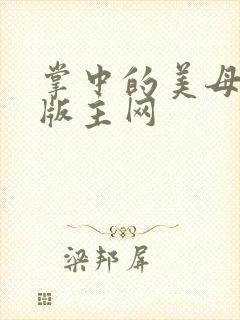 掌中的美母
版主网
梁邦屏